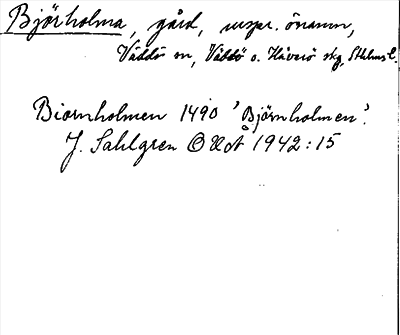 Björholma, gård, urspr. önamn,
Väddö sn, Väddö o. Häverö skg, Sthlms l.
Biornholmen 1490 'Björnholmen'.
J. Sahlgren OUÅ 1942:15